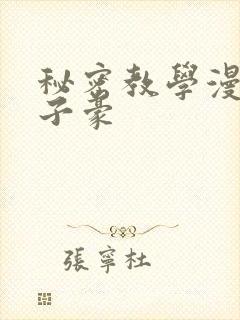 秘密教學漫
子豪
張寧杜